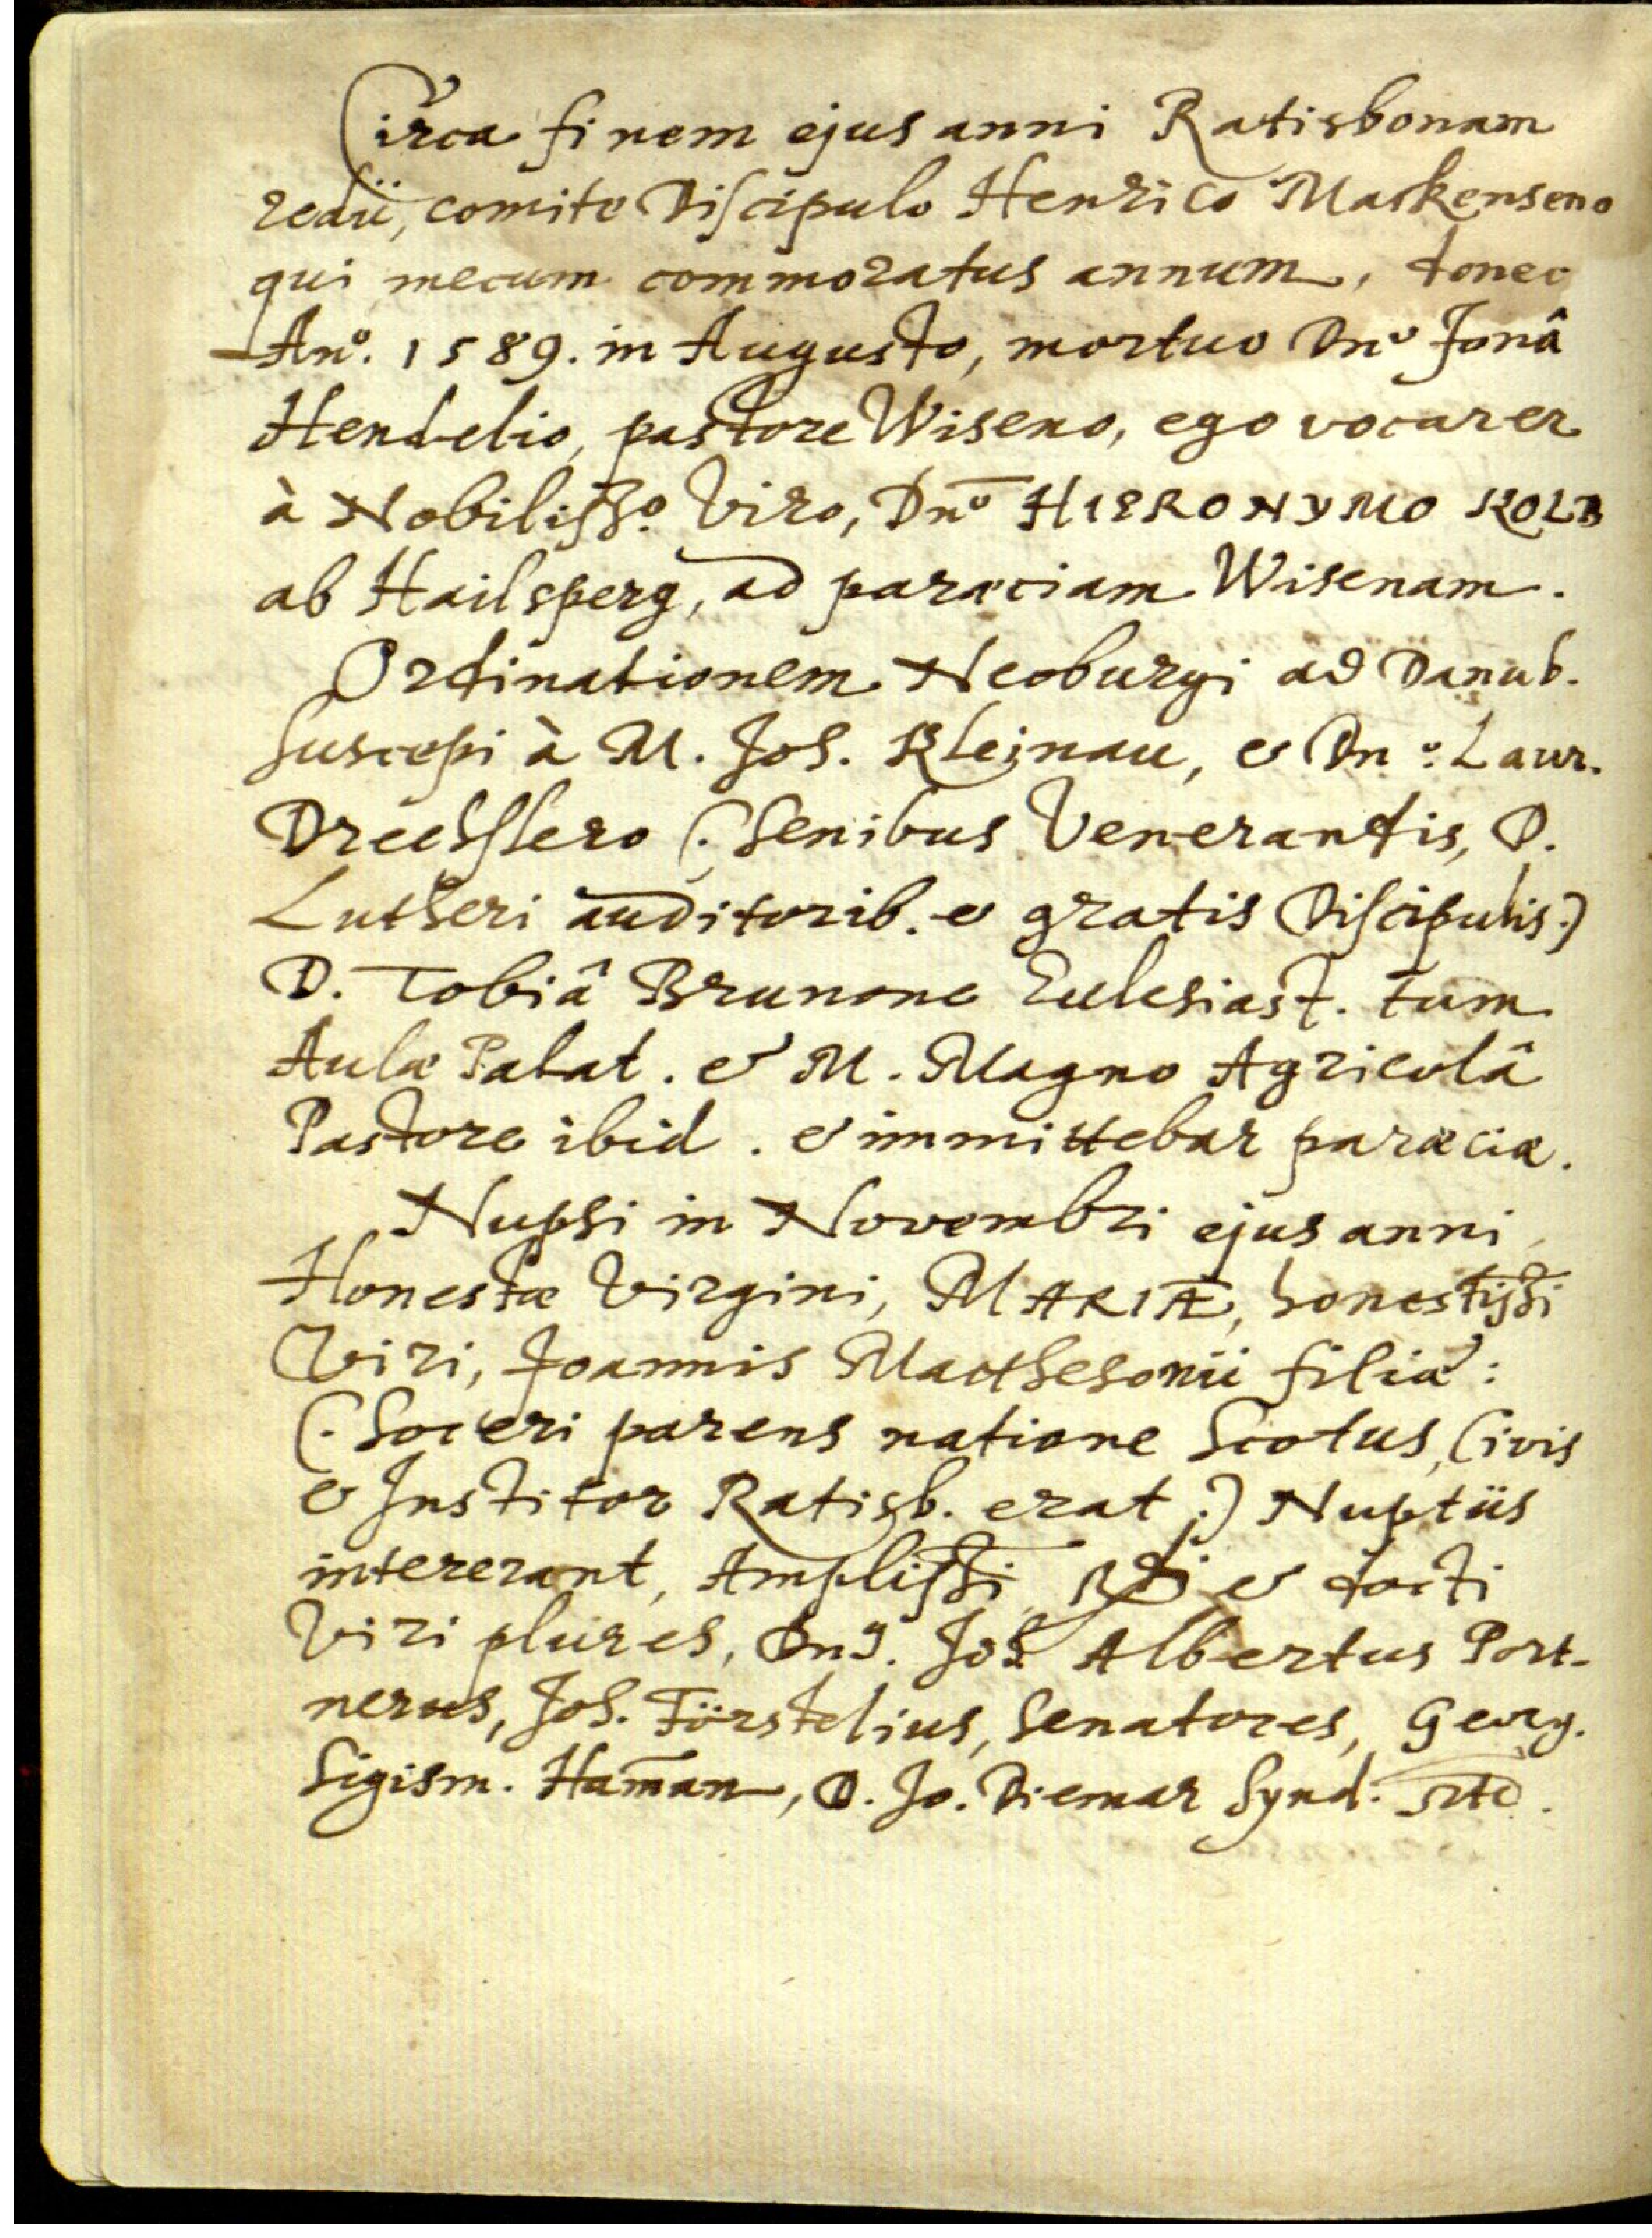 Circa finem ejus anni Ratisbonam
redii, comite Discipulo Henrico Mackenseno
qui mecum commoratus annum, donec
Anº. 1589. in Augusto, mortuo Dnº Jonâ
Hendelio, pastore Wiseno, ego vocarer
à Nobilissº. Viro, Dnº HIERONYMO KOLB
ab Hailsperg, ad paræciam Wisenam.
Ordinationem Neoburgi ad Danub.
suscepi à M. Joh. Kleinau, & Dnº: Laur.
Drechslero (: senibus Venerandis, D.
Lutheri auditorib. & gratis Discipulis:)
D. Tobiâ Brunone Ecclesiast. tum
Aulæ Palat. & M. Magno Agricolâ
Pastore ibid. & immittebar paræciæ.
Nupsi in Novembri ejus anni
Honestæ Virgini, MARIÆ, honestissi
Viri, Joannis Matthesonii filiæ:
(: Soceri parens natione Scotus, Civis
& Institor Ratisb. erat:) Nuptiis
intererant, Amplissi, Rdi & docti
Viri plures, Dns. Joh. Albertus Port-
nerus, Joh. Förstelius, Senatores, Georg.
Sigism. Haman̄, D. Jo. Diemar Synd.